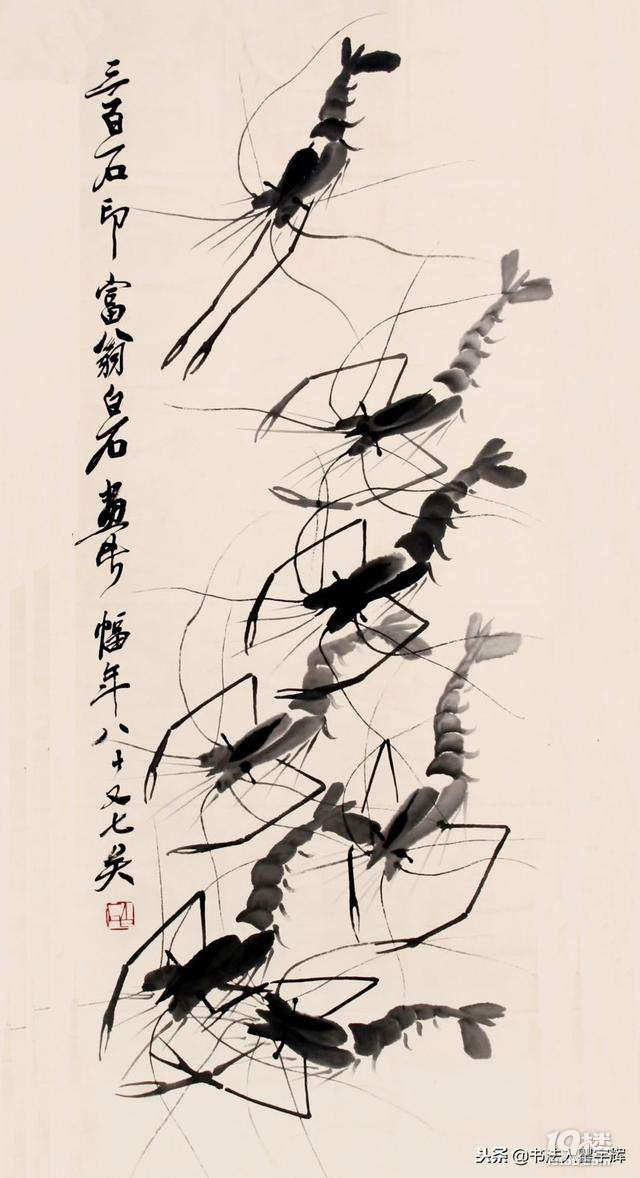 三百石印富翁白石畫此幅年八十又七矣
19楼
头条 @书法人瞿宇辉